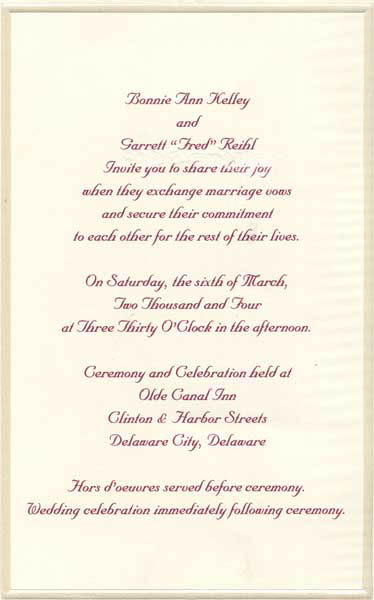 Bonnie Ann Kelley
and
Garrett "Fred" Reihl
Invite you to share their joy
when they exchange marriage vows
and secure their commitment
to each other for the rest of their lives.
On Saturday, the sixth of March,
Two Thousand and Four
at Three Thirty O'Clock in the afternoon.
Ceremony and Celebration held at
Olde Canal Inn
Clinton & Harbor Streets
Delaware City, Delaware
Hors d'oeuvres served before ceremony.
Wedding celebration immediately following ceremony.